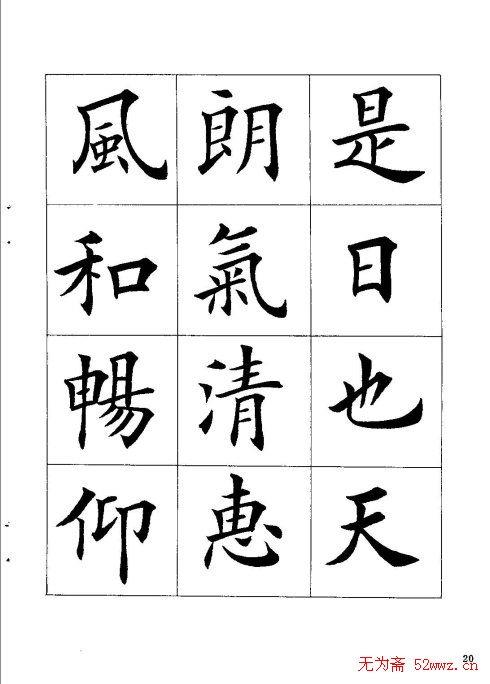 是日也天
朗氣清惠
風和暢仰
20
无为斋 52wwz.cn